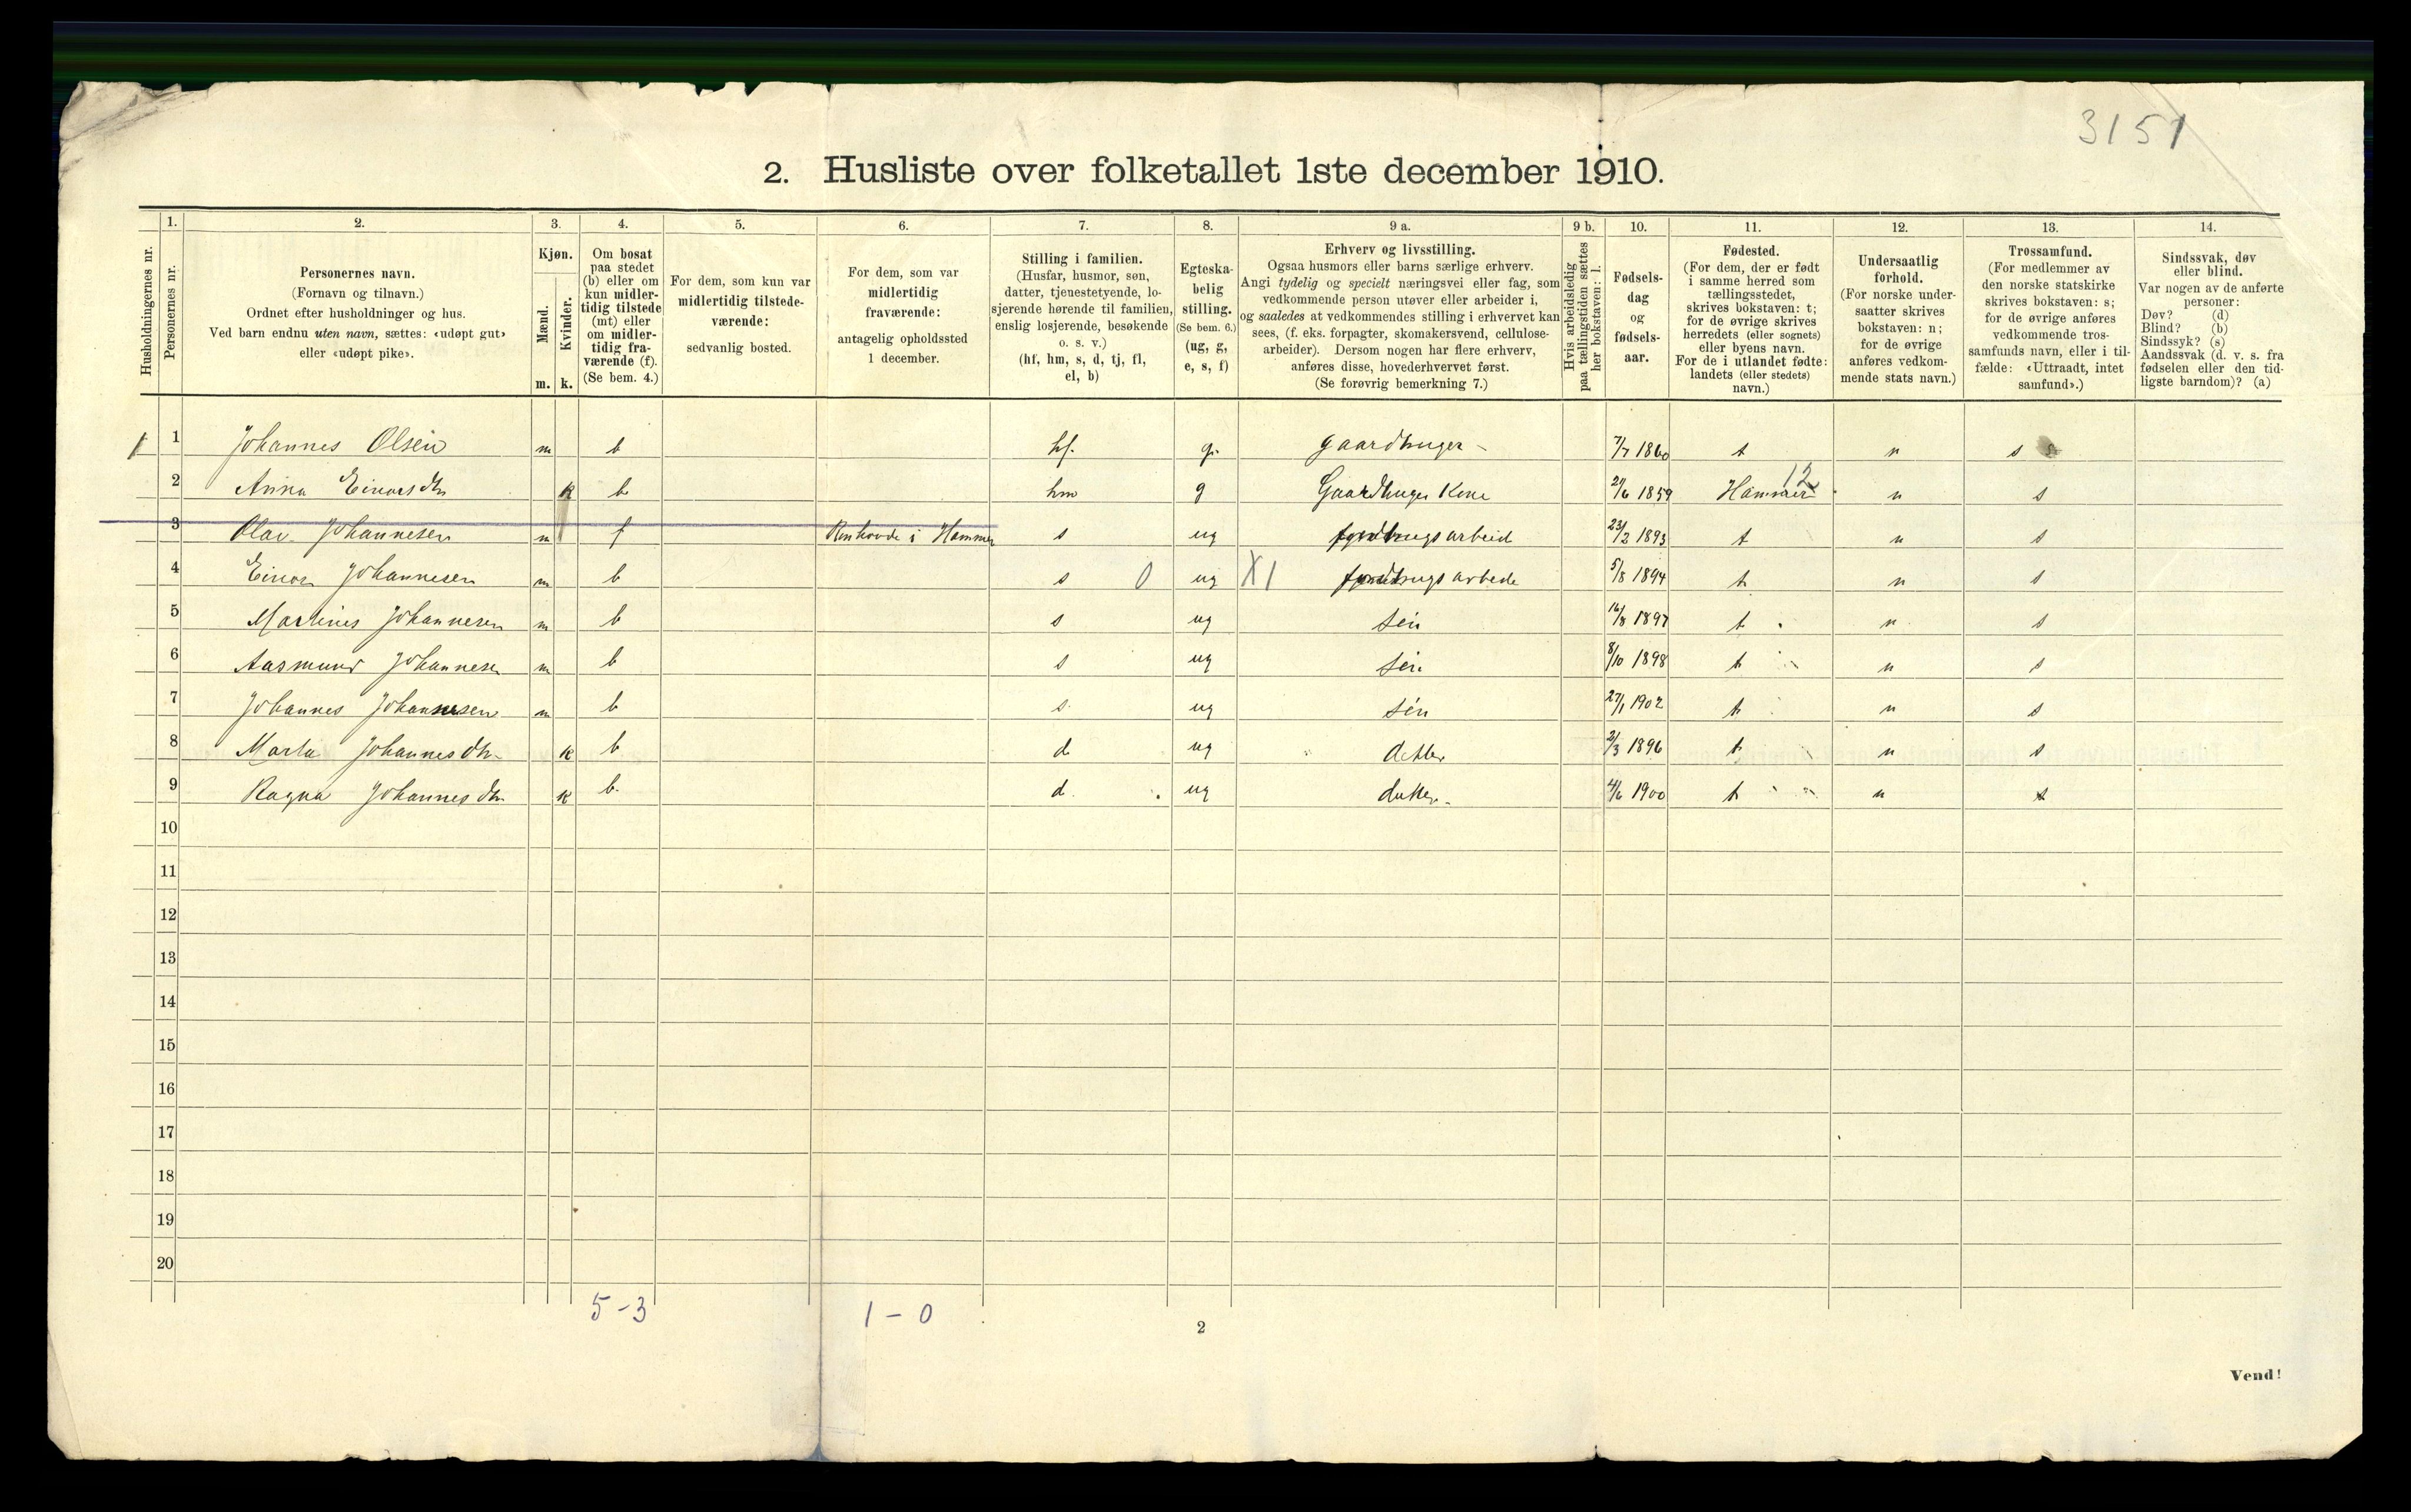 3151
2. Husliste over folketallet 1ste december 1910.
1. 2. 3. 4. 5. 6. 7. 8. 9 a. 9 b. 10. 11. 12. 13. 14.
Husholdningernes nr.
Personernes nr.
Personernes navn.
(Fornavn og tilnavn.)
Ordnet efter husholdninger og hus.
Ved barn endnu uten navn, sættes: «udøpt gut»
eller «udøpt pike».
Kjøn.
Mænd.
Kvinder.
m. k.
Om bosat
paa stedet
(b) eller om
kun midler-
tidig tilstede
(mt) eller
om midler-
tidig fra-
værende (f).
(Se bem. 4.)
For dem, som kun var
midlertidig tilstede-
værende:
sedvanlig bosted.
For dem, som var
midlertidig
fraværende:
antagelig opholdssted
1 december.
Stilling i familien.
(Husfar, husmor, søn,
datter, tjenestetyende, lo-
sjerende hørende til familien,
enslig losjerende, besøkende
o. s. v.)
(hf, hm, s, d, tj, fl,
el, b)
Egteska-
belig
stilling.
(Se bem. 6.)
(ug, g,
e, s, f)
Erhverv og livsstilling.
Ogsaa husmors eller barns særlige erhverv.
Angi tydelig og specielt næringsvei eller fag, som
vedkommende person utøver eller arbeider i,
og saaledes at vedkommendes stilling i erhvervet kan
sees, (f. eks. forpagter, skomakersvend, cellulose-
arbeider). Dersom nogen har flere erhverv,
anføres disse, hovederhvervet først.
(Se forøvrig bemerkning 7.)
Hvis arbeidsledig
paa tællingstiden sættes
her bokstaven: l.
Fødsels-
dag
og
fødsels-
aar.
Fødested.
(For dem, der er født
i samme herred som
tællingsstedet,
skrives bokstaven: t;
for de øvrige skrives
herredets (eller sognets)
eller byens navn.
For de i utlandet fødte:
landets (eller stedets)
navn.)
Undersaatlig
forhold.
(For norske under-
saatter skrives
bokstaven: n;
for de øvrige
anføres vedkom-
mende stats navn.)
Trossamfund.
(For medlemmer av
den norske statskirke
skrives bokstaven: s;
for de øvrige anføres
vedkommende tros-
samfunds navn, eller i til-
fælde: «Uttraadt, intet
samfund».)
Sindssvak, døv
eller blind.
Var nogen av de anførte
personer:
Døv? (d)
Blind? (b)
Sindssyk? (s)
Aandssvak (d. v. s. fra
fødselen eller den tid-
ligste barndom)? (a)
1 1 Johannes Olsen m b hf. g. gaardbruger - 7/7 1860 t n s
2 Anna Einarsdtr k b hm g Gaardbruger Kone 21/6 1859 Hammer 12 n s
3 Olav Johannesen m f i Hammer s ug arbeid 23/2 1893 t n s
4 Einar Johannesen m b s 0 ug X1 arbede 5/8 1894 t n s
5 Marinus Johannesen m b s ug søn 16/8 1897 t n s
6 Aasmund Johannesen m b s ug søn 8/10 1898 t n s
7 Johannes Johannesen m b s ug søn 27/1 1902 t n s
8 Marta Johannesdtr k b d ug datter 2/3 1896 t n s
9 Ragna Johannesdtr k b d ug datter 4/6 1900 t n s
10
11
12
13
14
15
16
17
18
19
20
5-3 1-0
2
Vend!